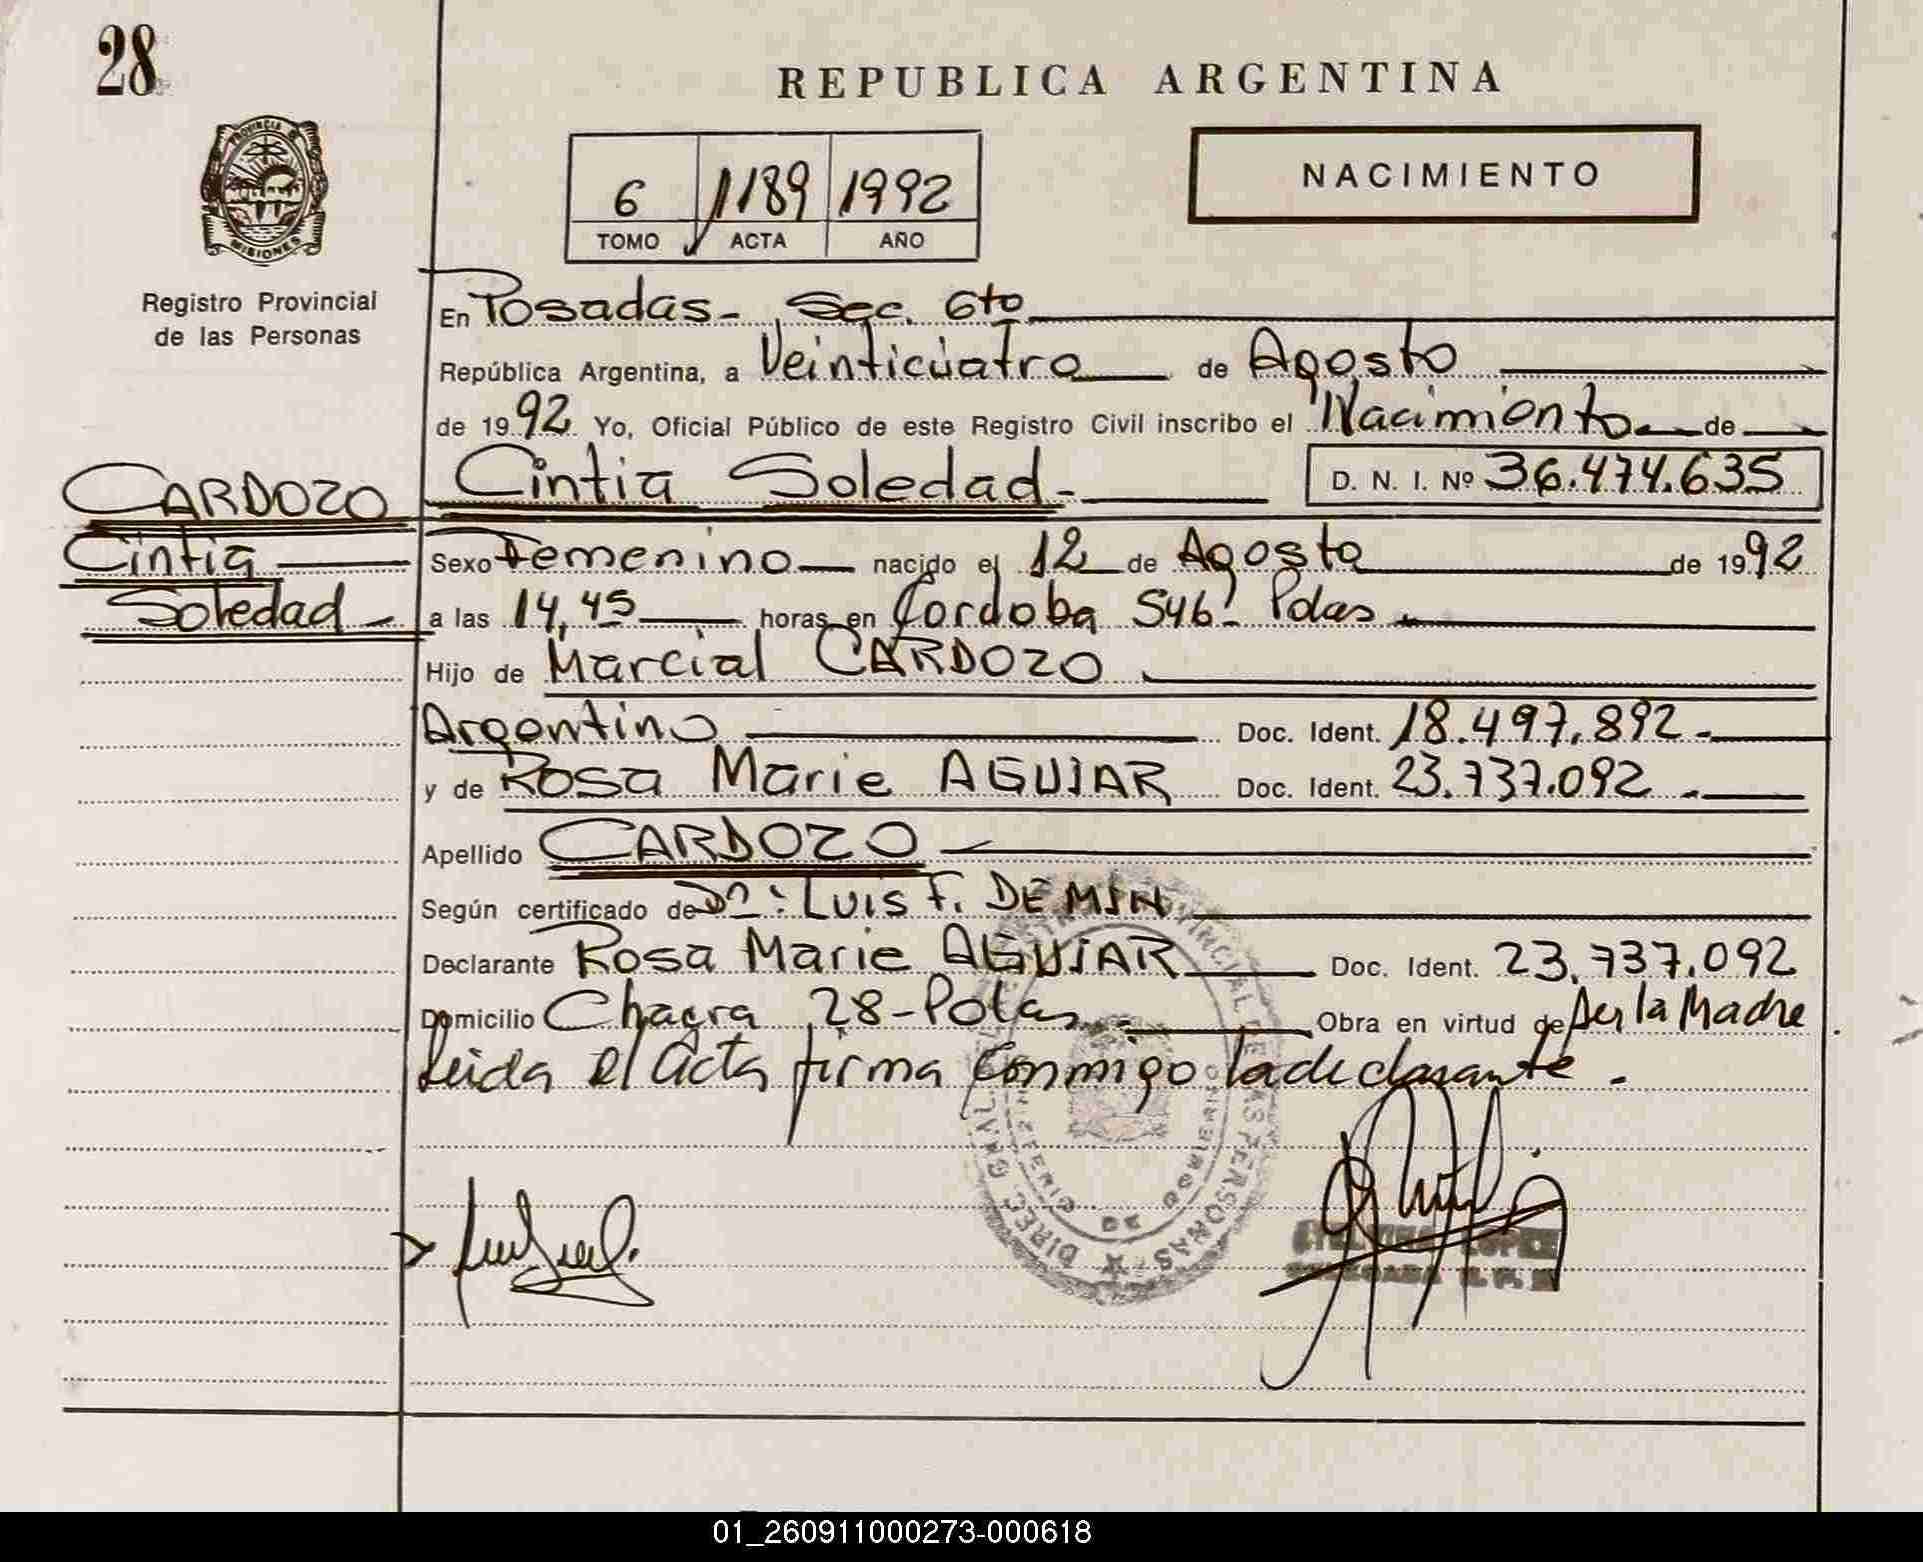 28
REPUBLICA ARGENTINA
NACIMIENTO
6 1189 1992
TOMO ACTA AÑO
PROVINCIA DE
MISIONES
Registro Provincial
de las Personas
En Posadas - Sec. 6to
República Argentina, a Veinticuatro de Agosto
de 1992 Yo, Oficial Público de este Registro Civil inscribo el Nacimiento de
CARDOZO
Cintia
Soledad -
Cintia Soledad - D. N. I. Nº 36.474.635
Sexo Femenino nacido el 12 de Agosto de 1992
a las 14,45 horas en Cordoba 546 - Pdas -
Hijo de Marcial CARDOZO
Argentino Doc. Ident. 18.497.892 -
y de Rosa Marie AGUIAR Doc. Ident. 23.737.092 -
Apellido CARDOZO
Según certificado de Dn: LUIS F. DE MIN
Declarante Rosa Marie AGUIAR Doc. Ident. 23.737.092
Domicilio Chacra 28 - Pdas - Obra en virtud de Ser la Madre
Leida el acta firma conmigo la declarante -
01_260911000273-000618